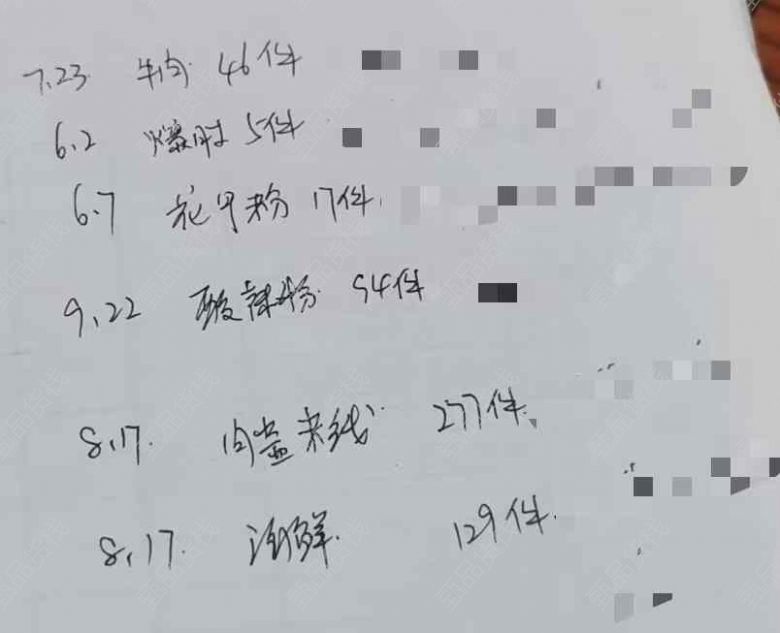 7.23 牛肉 46件
6.2 爆肚 5件
6.7 花甲粉 17件
9.22 酸辣粉 94件
8.17. 肉盖米线 277件
8.17. 海鲜 129件